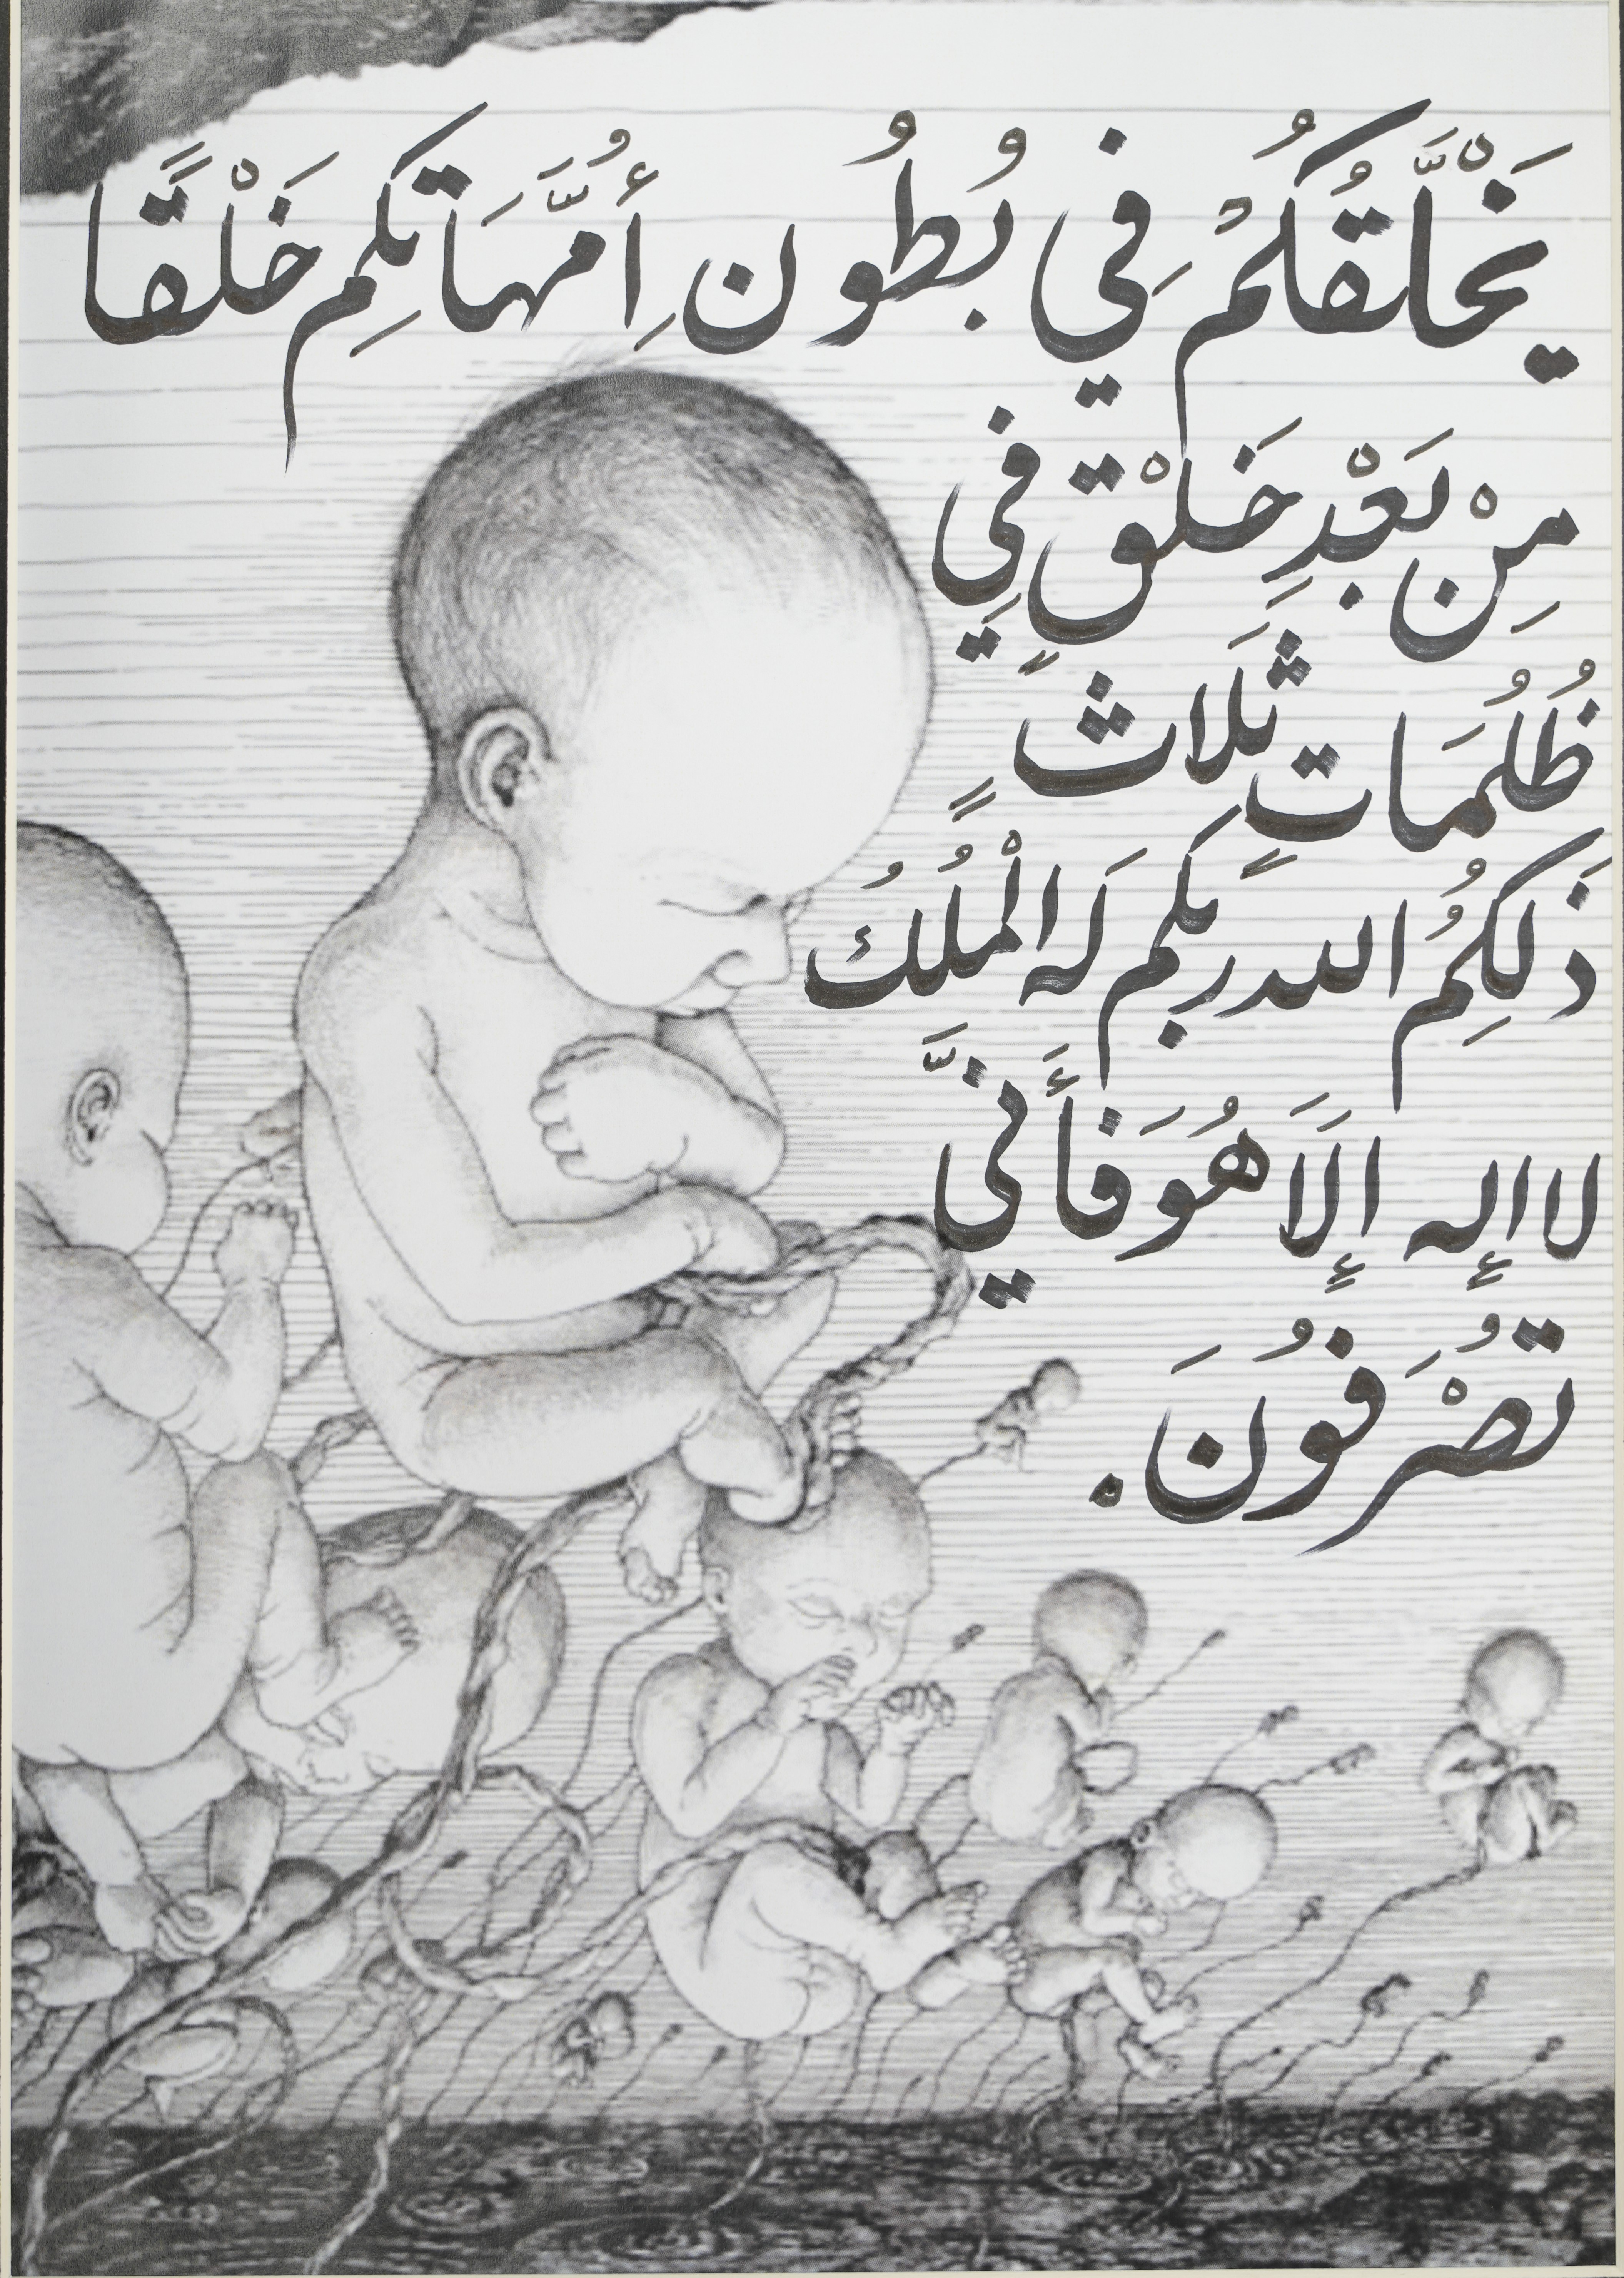 يَخْلَّقُكُمْ فِي بُطُونِ أُمَّهَاتِكِم خَلْقًا
مِنْ بَعْدِ خَلْقٍ فِي
ظُلُمَاتٍ ثَلاثٍ
ذَلِكُمُ الله ربكم لَه الْمُلْكُ
لا إله إِلَّا هُوَ فَأَنَّي
تُصْرَفُونَ.